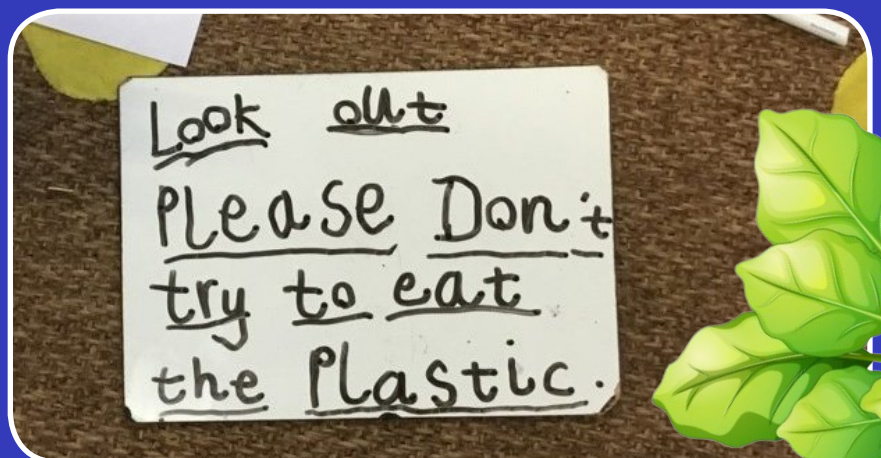 Look out
Please Don't
try to eat
the Plastic.